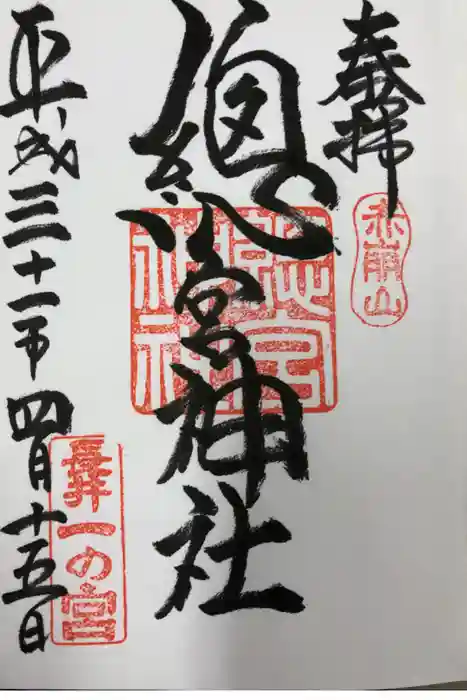 奉拝
赤崩山
總宮神社
總宮
神社
平成三十一年四月十五日
長井一の宮